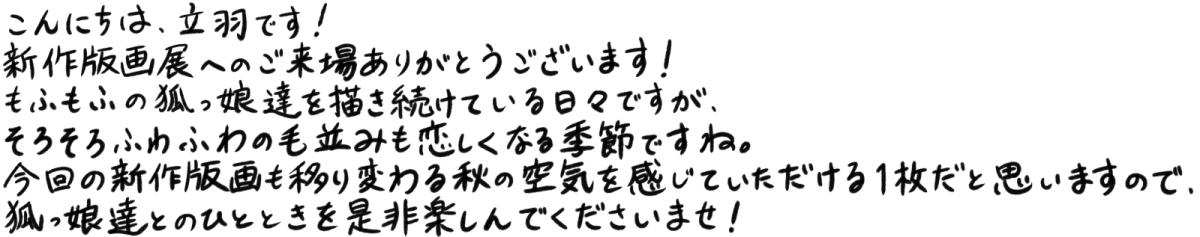 こんにちは、立羽です!
新作版画展へのご来場ありがとうございます!
もふもふの狐っ娘達を描き続けている日々ですが、
そろそろふわふわの毛並みも恋しくなる季節ですね。
今回の新作版画も移り変わる秋の空気を感じていただける1枚だと思いますので、
狐っ娘達とのひとときを是非楽しんでくださいませ!